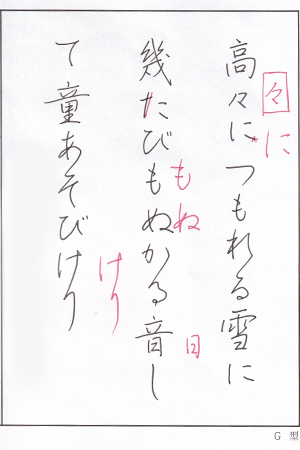 高々につもれる雪に
々
に
幾たびもぬかる音し
もぬ
日
て童あそびけり
けり
G 型